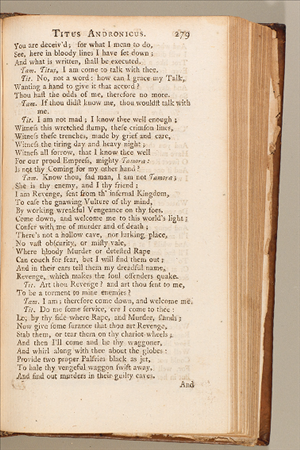 TITUS ANDRONICUS. 279
You are deceiv'd; for what I mean to do,
See, here in bloody lines I have set down;
And what is written, shall be executed.
Tam. Titus, I am come to talk with thee.
Tit. No, not a word: how can I grace my Talk,
Wanting a hand to give it that accord?
Thou hast the odds of me, therefore no more.
Tam. If thou didst know me, thou wouldst talk with
me.
Tit. I am not mad; I know thee well enough;
Witness this wretched stump, these crimson lines,
Witness these trenches, made by grief and care,
Witness the tiring day and heavy night;
Witness all sorrow, that I know thee well
For our proud Empress, mighty Tamora:
Is not thy Coming for my other hand?
Tam. Know thou, sad man, I am not Tamora;
She is thy enemy, and I thy friend;
I am Revenge, sent from th' infernal Kingdom,
To ease the gnawing Vulture of thy mind,
By working wreakful Vengeance on thy foes.
Come down, and welcome me to this world's light;
Confer with me of murder and of death;
There's not a hollow cave, nor lurking place,
No vast obscurity, or misty vale,
Where bloody Murder or detested Rape
Can couch for fear, but I will find them out;
And in their ears tell them my dreadful name,
Revenge, which makes the foul offenders quake.
Tit. Art thou Revenge? and art thou sent to me,
To be a torment to mine enemies?
Tam. I am; therefore come down, and welcome me.
Tit. Do me some service, ere I come to thee:
Lo, by thy side where Rape, and Murder, stands;
Now give some surance that thou art Revenge,
Stab them, or tear them on thy chariot-wheels;
And then I'll come and be thy waggoner,
And whirl along with thee about the globes:
Provide two proper Palfries black as jet,
To hale thy vengeful waggon swift away,
And find out murders in their guilty caves.
And